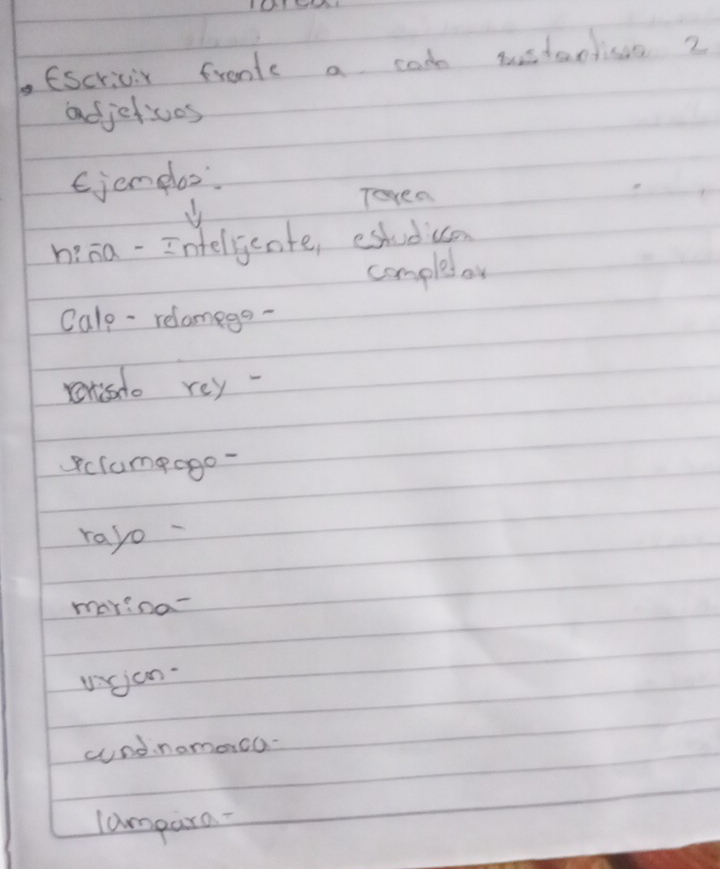 Tarea.
Escrivir frente a cada sustantivo 2
adjetivos
Ejemplos:
Tarea
niña - Inteligente, estudiosa
completar
Cale - relampego -
rey -
rayo -
marina -
virjen -
cundinamarca -
lampara -